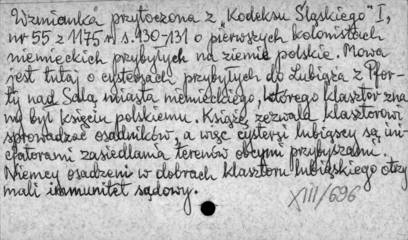 Wzmianka przytoczona z „Kodeksu Śląskiego" I,
nr 55 z 1175 r. s. 130-131 o pierwszych kolonistach
niemieckich przybyłych na ziemie polskie. Mowa
jest tutaj o cystersach przybyłych do Lubiąża z Pfor-
ty nad Salą, miasta niemieckiego, którego klasztor zna
ny był księciu polskiemu. Książę zezwala klasztorowi
sprowadzać osadników, a więc cystersi lubiąscy są ini-
cjatorami zasiedlania terenów obcymi przybyszami.
Niemcy osadzeni w dobrach klasztoru lubiąskiego otrzy
mali immunitet sądowy.
XIII/696